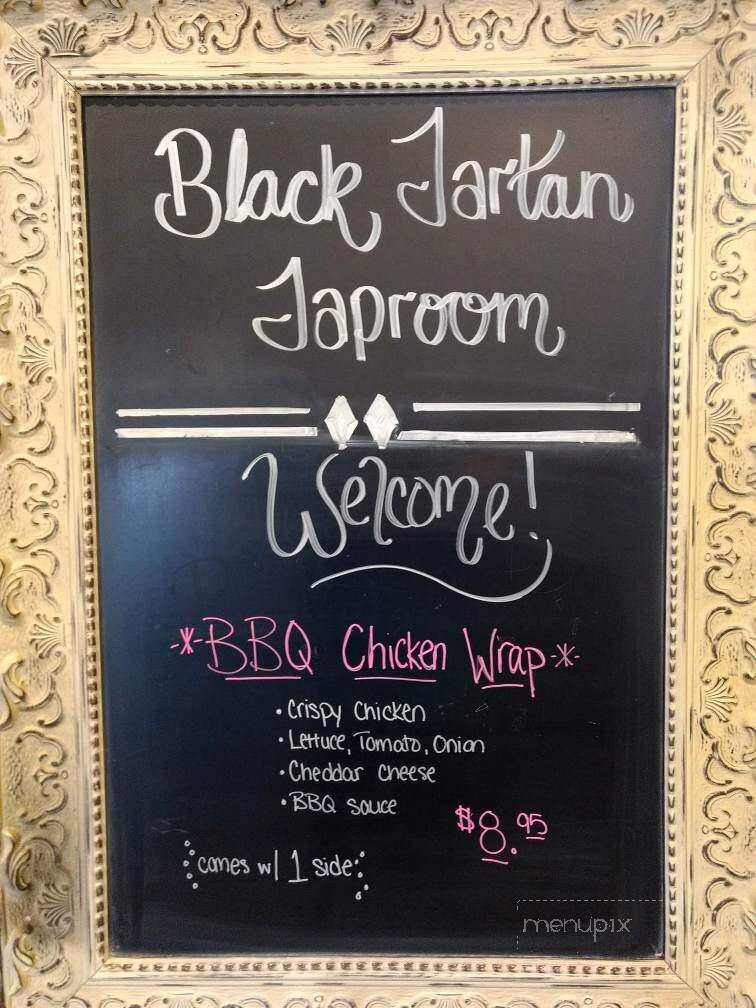 Black Tartan
Taproom
Welcome!
*BBQ Chicken Wrap*
• Crispy Chicken
• Lettuce, Tomato, Onion
• Cheddar Cheese
• BBQ Sauce
$8.95
comes w/ 1 side
menupix